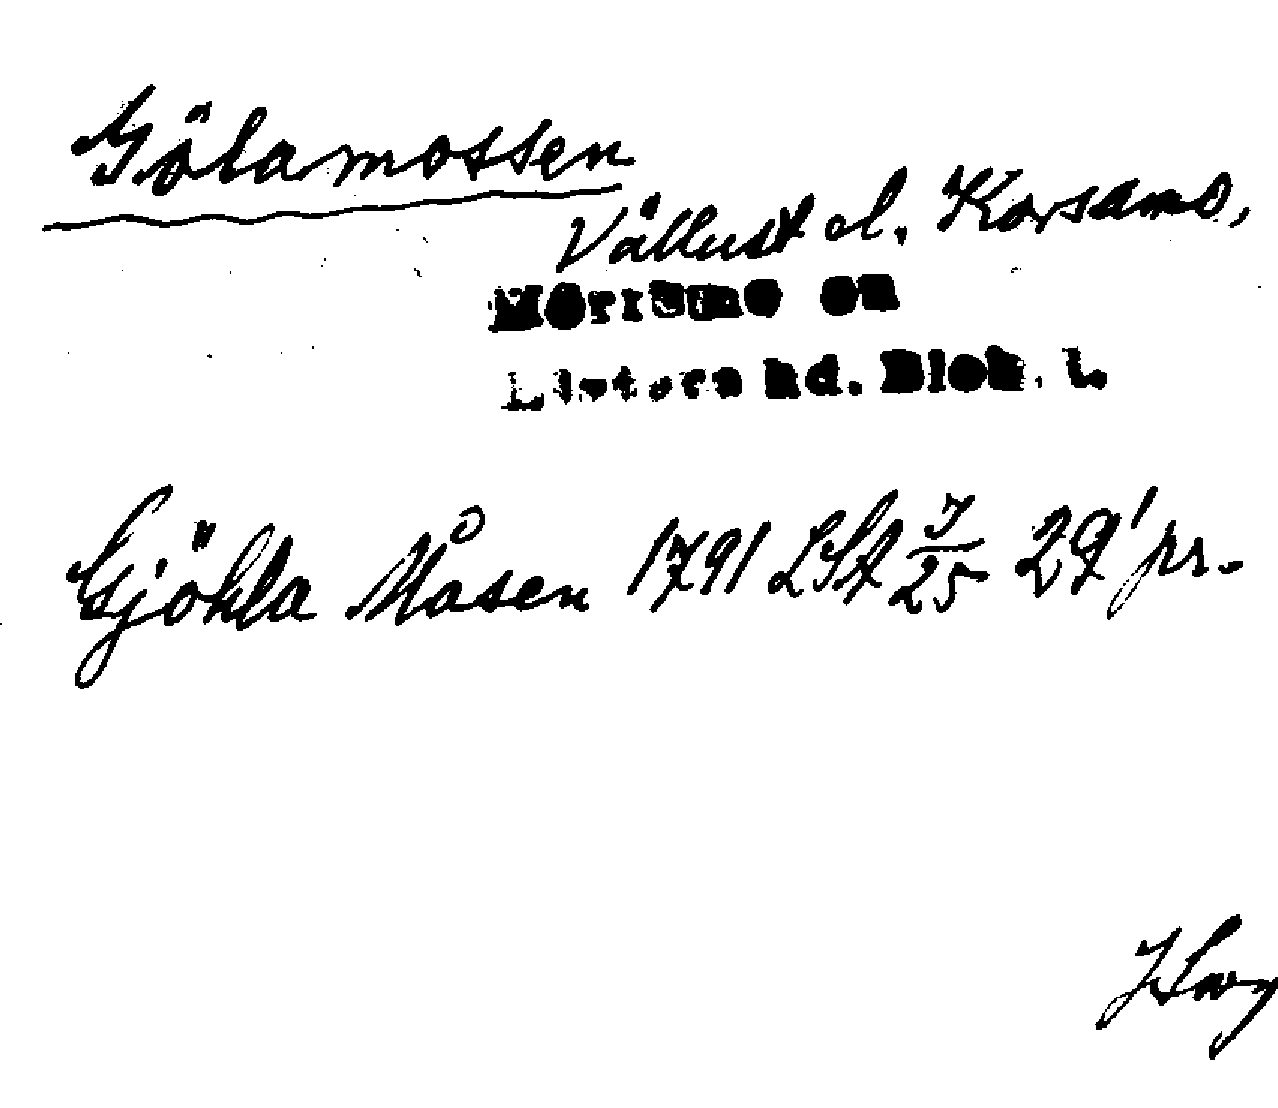 Gölamossen
Vållust el. Korsamo,
Mörrums en
Listers hd. Blek. l.
Gjöhla Måsen 1791 LSA J/25 29' pr.